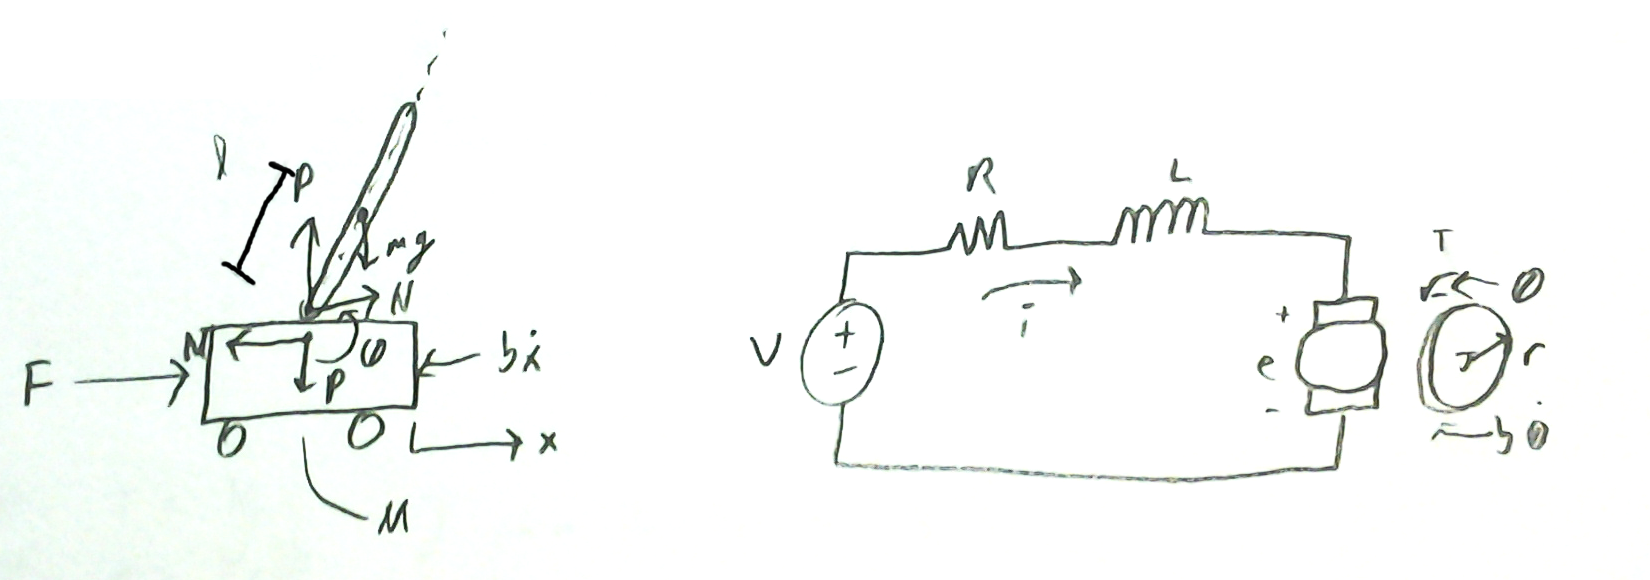 l
P
mg
N
N
φ
F
P
bẋ
x
M
R
L
i
V
+
−
+
e
-
T
θ
J
r
bθ̇